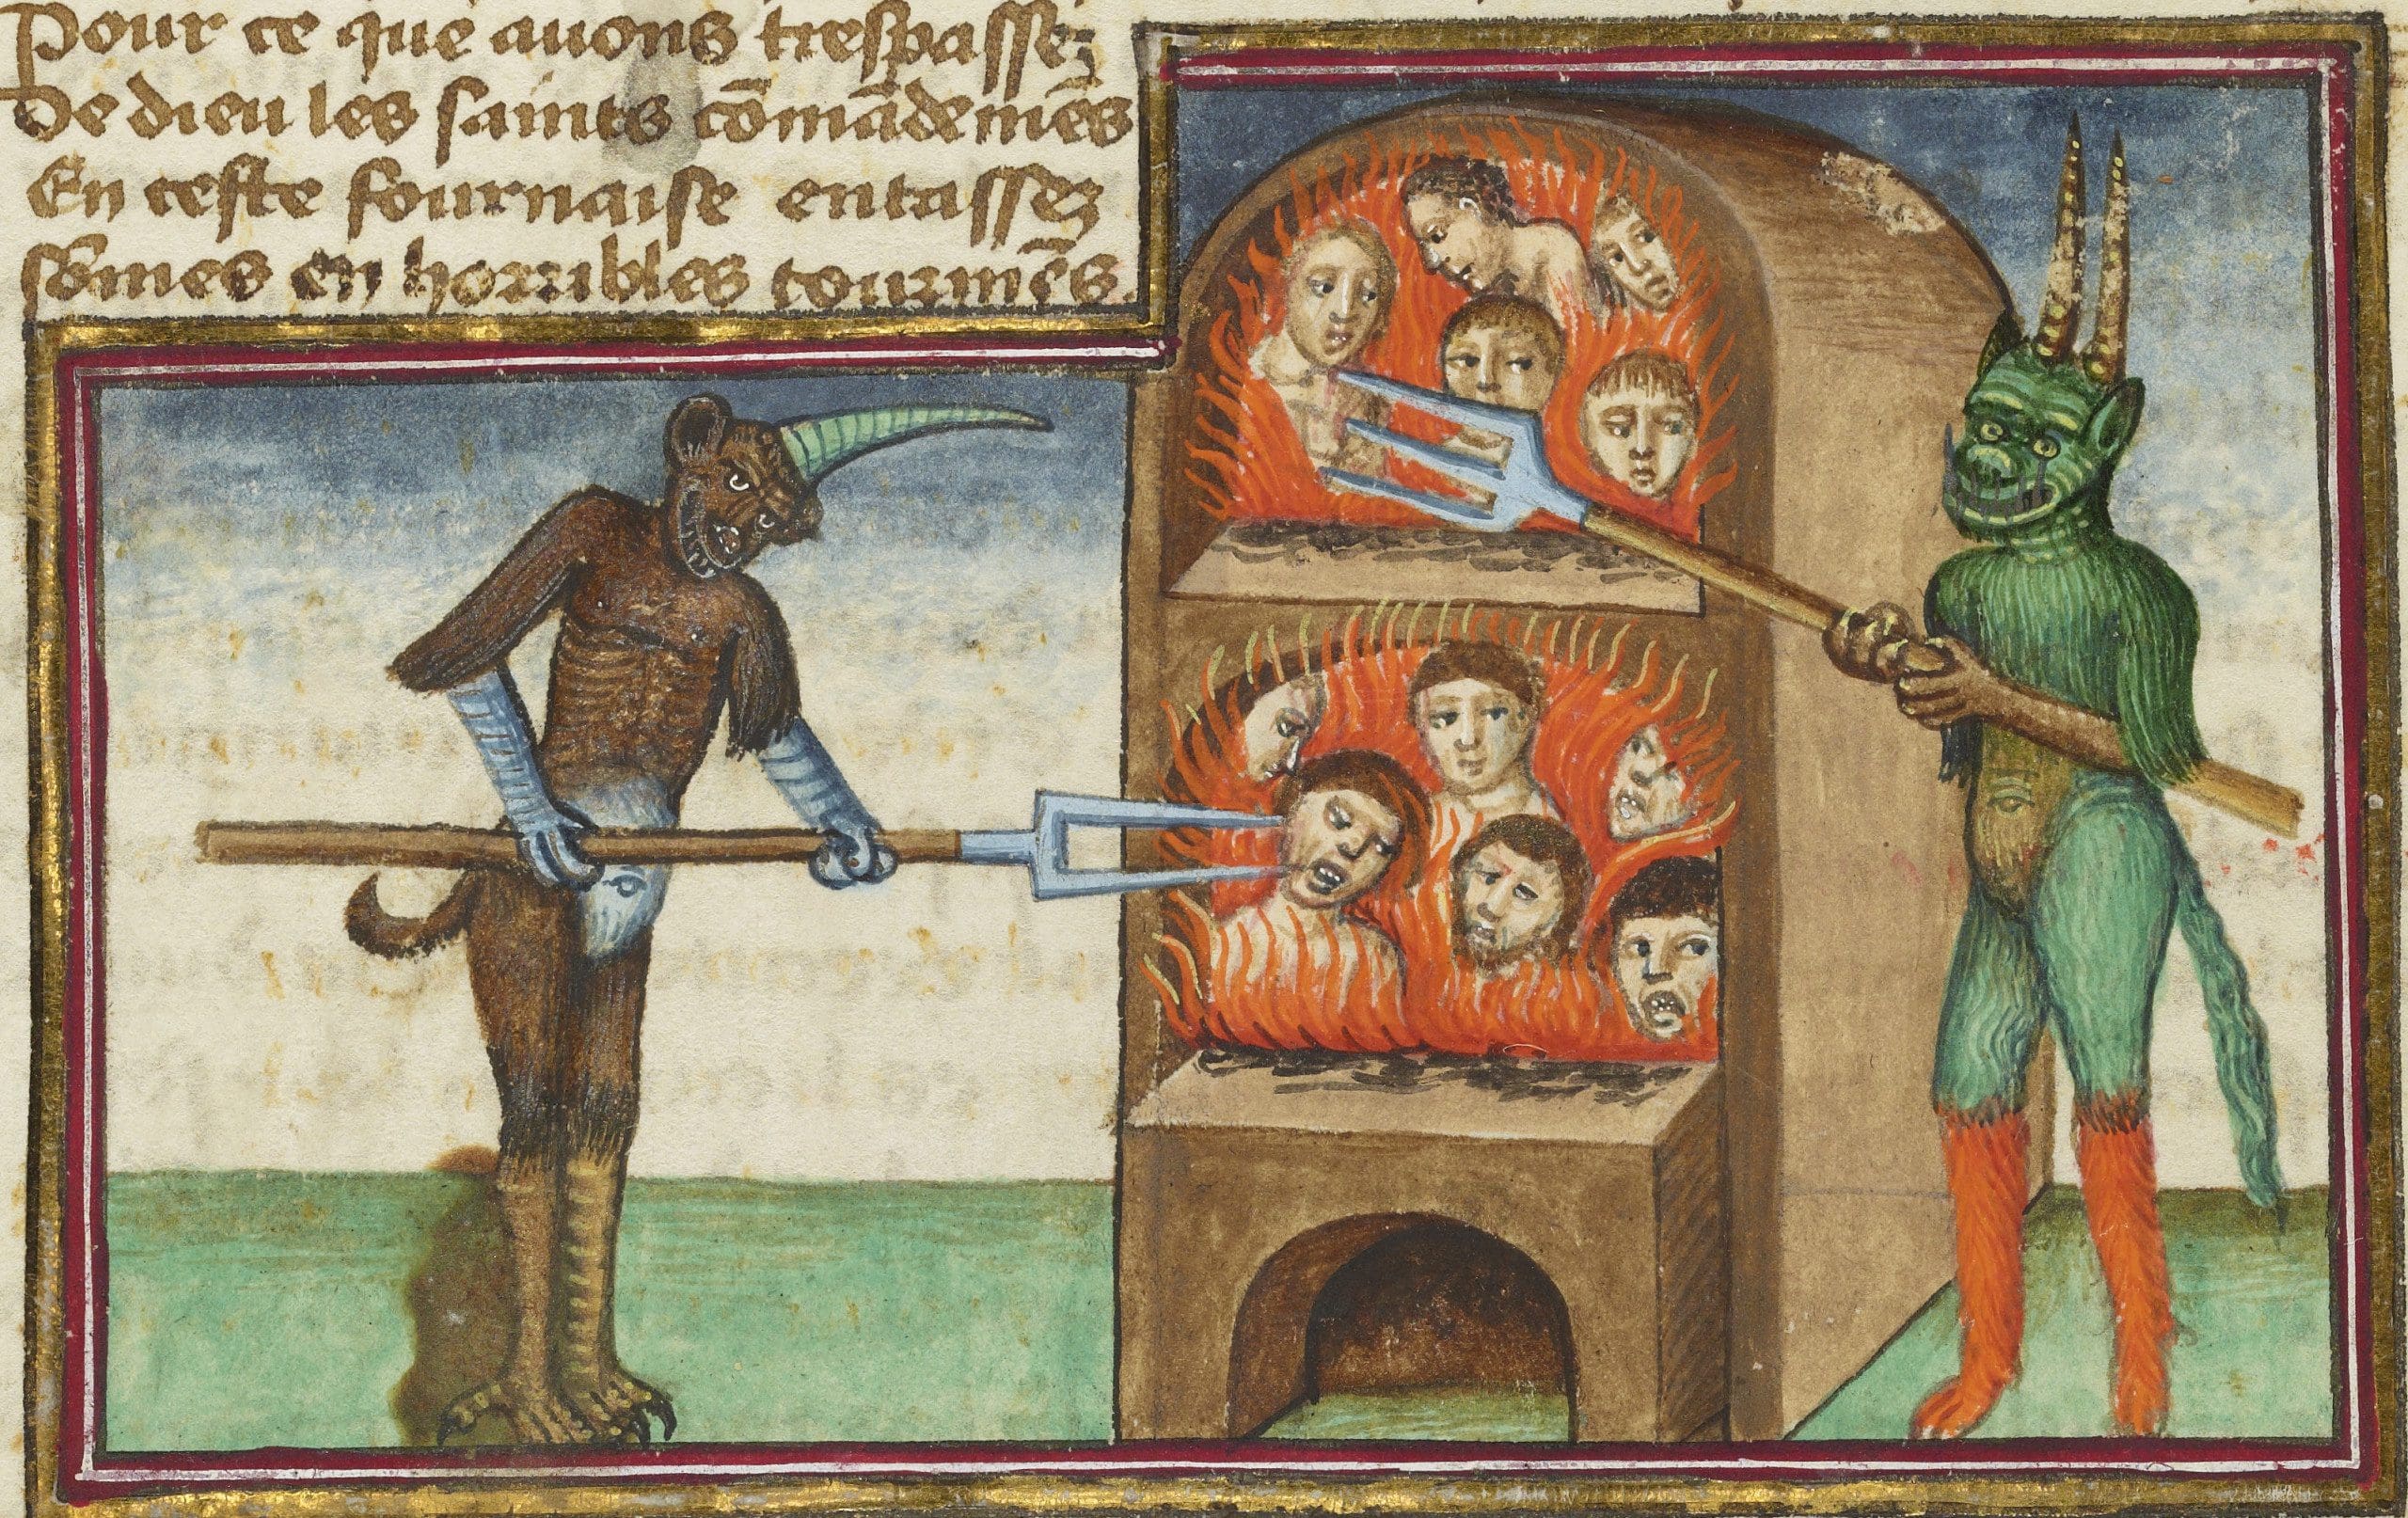 Pour ce que auons trespassez
De dieu les saints cōmādemēs
En ceste fournaise entassez
sōmes en horribles tourmēs.